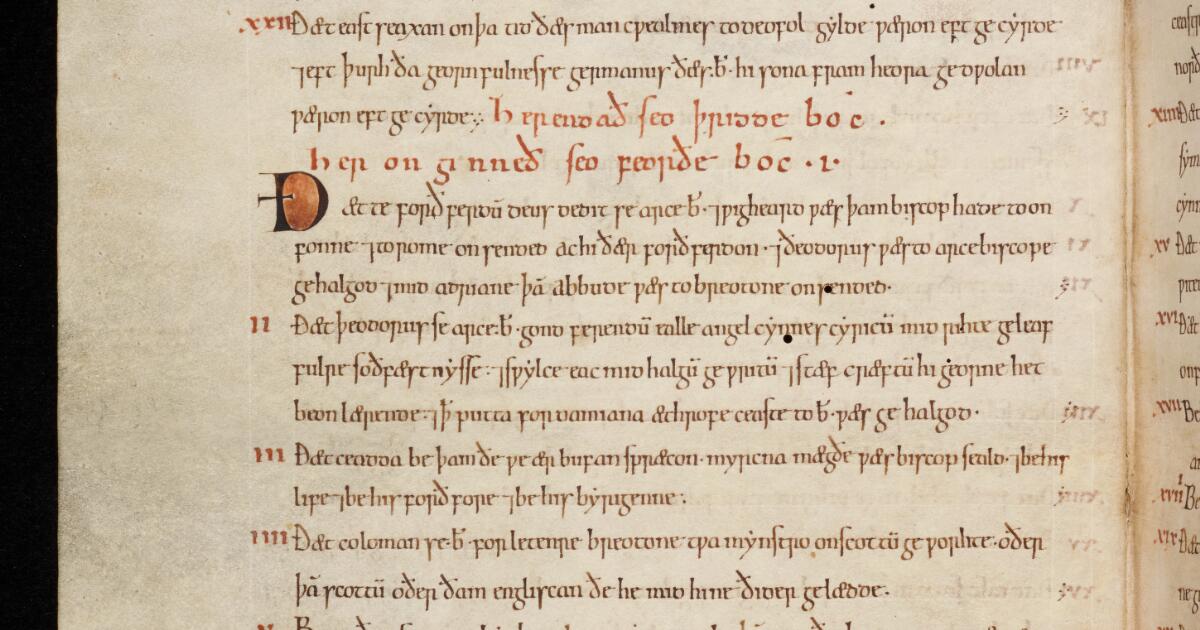 xxii Ðæt east seaxan on þa tid ðæs man cwealmes to deofol gylde wæron eft ge cyrde
⁊eft þurh ða geornfulnesse germanus ðæs .b̄. hi sona fram hedra ge dwolan
wæron eft ge cyrde:
her endað seo þridde boc.
her on ginneð seo feorðe boc .i.
Ðæt te forðferdū deus dedit se arce b̄. ⁊wigheard wæs þam biscop hade to on
fonne ⁊to rome onsended ac hi ðær forðferdon. ⁊ðeodorius wæs to arcebiscope
gehalgod ⁊mid adriane þā abbude wæs to breotone onsended.
ii Ðæt þeodorius se arce .b̄. gond ferendū ealle angel cynnes cyricū mid rihte geleaf
fulre soðfæstnysse: ⁊swylce eac mid halgū gewritū ⁊stæf cræftū hi georne het
beon lærende: ⁊ꝥ putta for damiana æt hrofe ceastre to b̄. wæs ge halgod.
iii Ðæt ceadda be þam ðe we ær bufan spræcon. myrcna mægðe wæs biscop seald. ⁊be his
life ⁊be his forðfore ⁊be his byrigenne:.
iiii Ðæt coloman se .b̄. forletenre breotone twa mynstro on scottū ge worhte. oðer
þā scottū oðer ðam engliscan ðe he mid hine ðider gelædde.